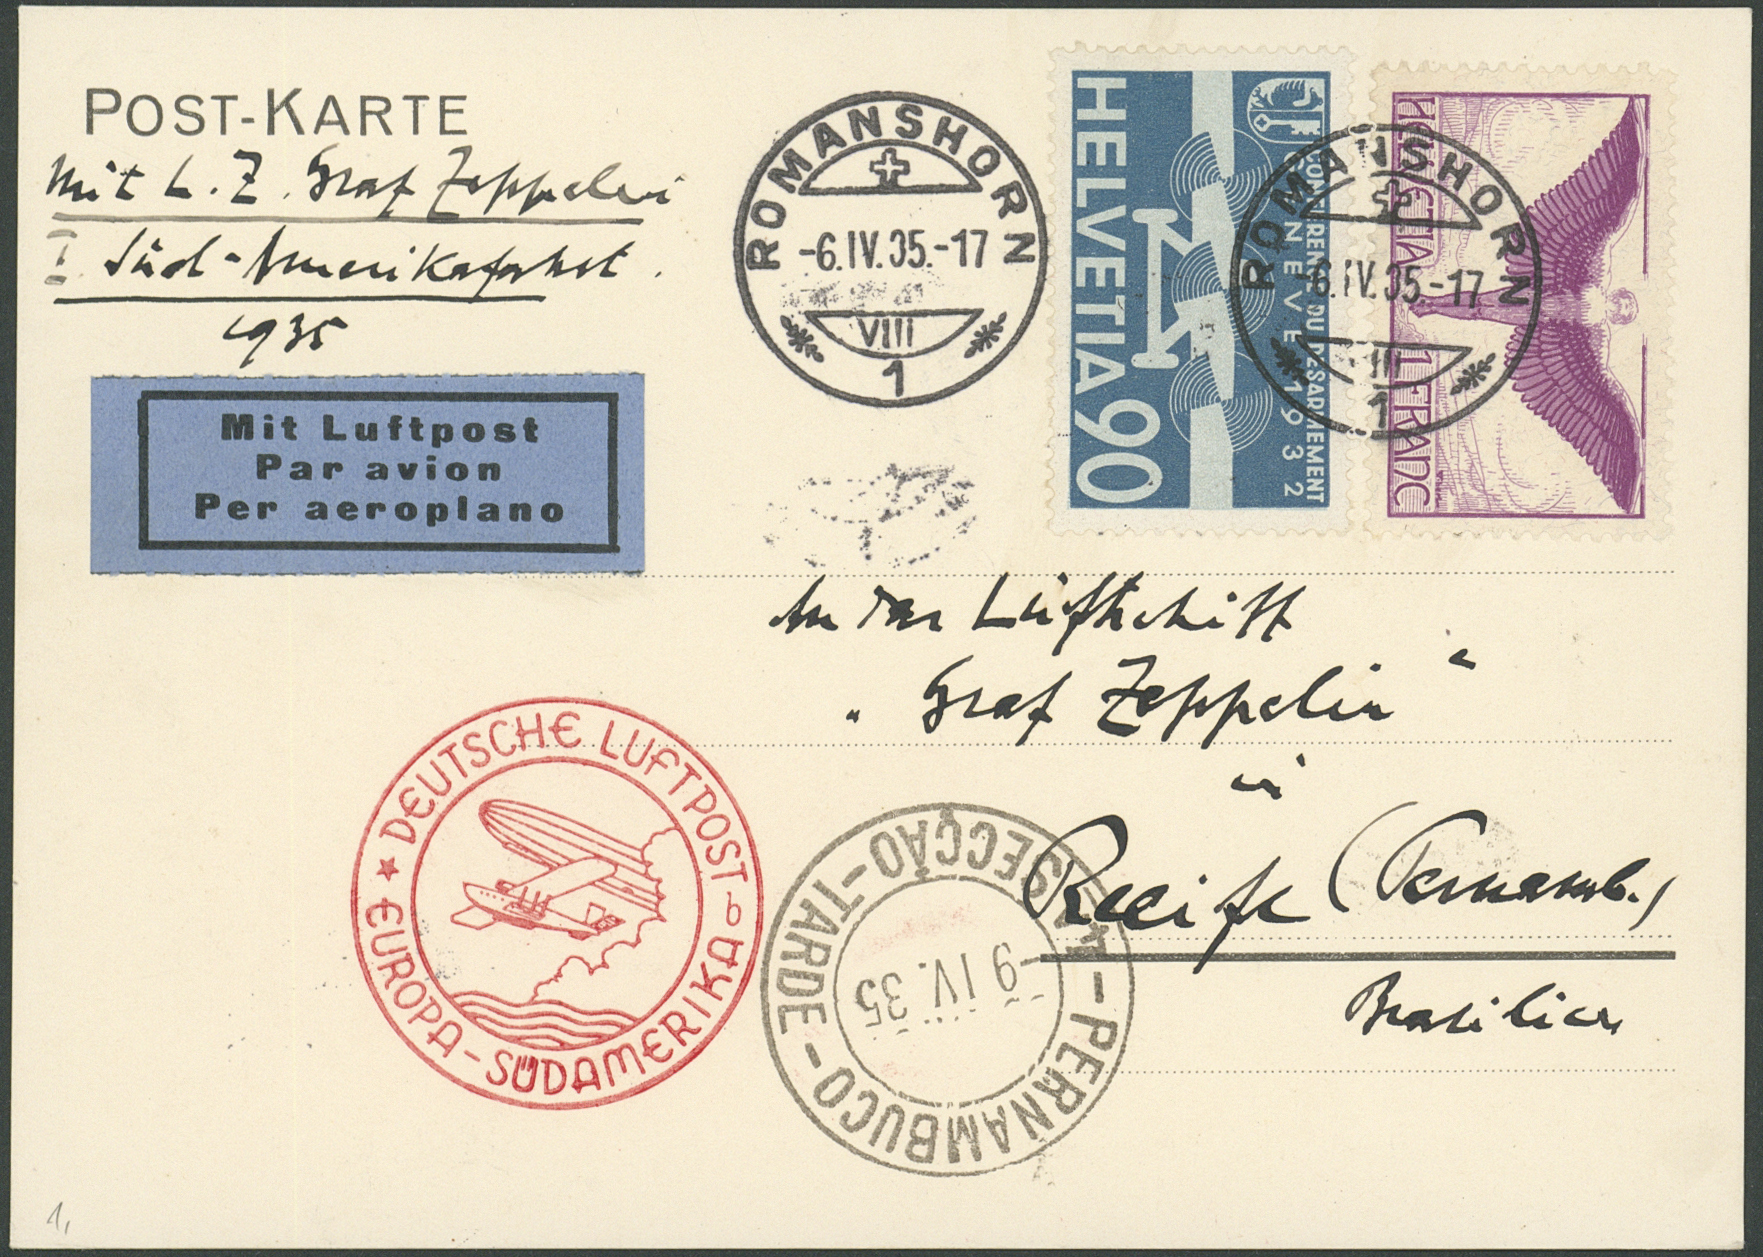 POST-KARTE
Mit L.Z. Graf Zeppelin
I. Süd-Amerikafahrt.
1935
Mit Luftpost
Par avion
Per aeroplano
ROMANSHORN
-6.IV.35.-17
VIII
1
HELVETIA 90
CONFERENCE DU DESARMEMENT
GENEVE 1932
HELVETIA 1 FRANC
ROMANSHORN
-6.IV.35.-17
VIII
1
An das Luftschiff
„Graf Zeppelin"
in
Recife (Pernamb.)
Brasilien
DEUTSCHE LUFTPOST
b
EUROPA-SÜDAMERIKA
SECÇÃO-TARDE-PERNAMBUCO-
9 IV. 35
1,